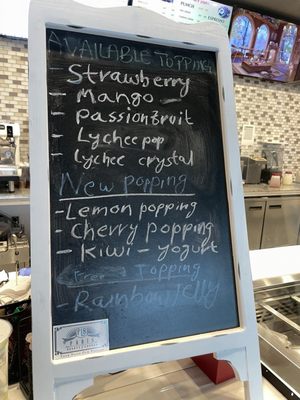 AVAILABLE TOPPING
- Strawberry
- Mango -
- Passionfruit
- Lychee pop
- Lychee crystal
New popping
- Lemon popping
- Cherry popping
- Kiwi - yogurt
Free Topping
- Rainbow Jelly
PARIS